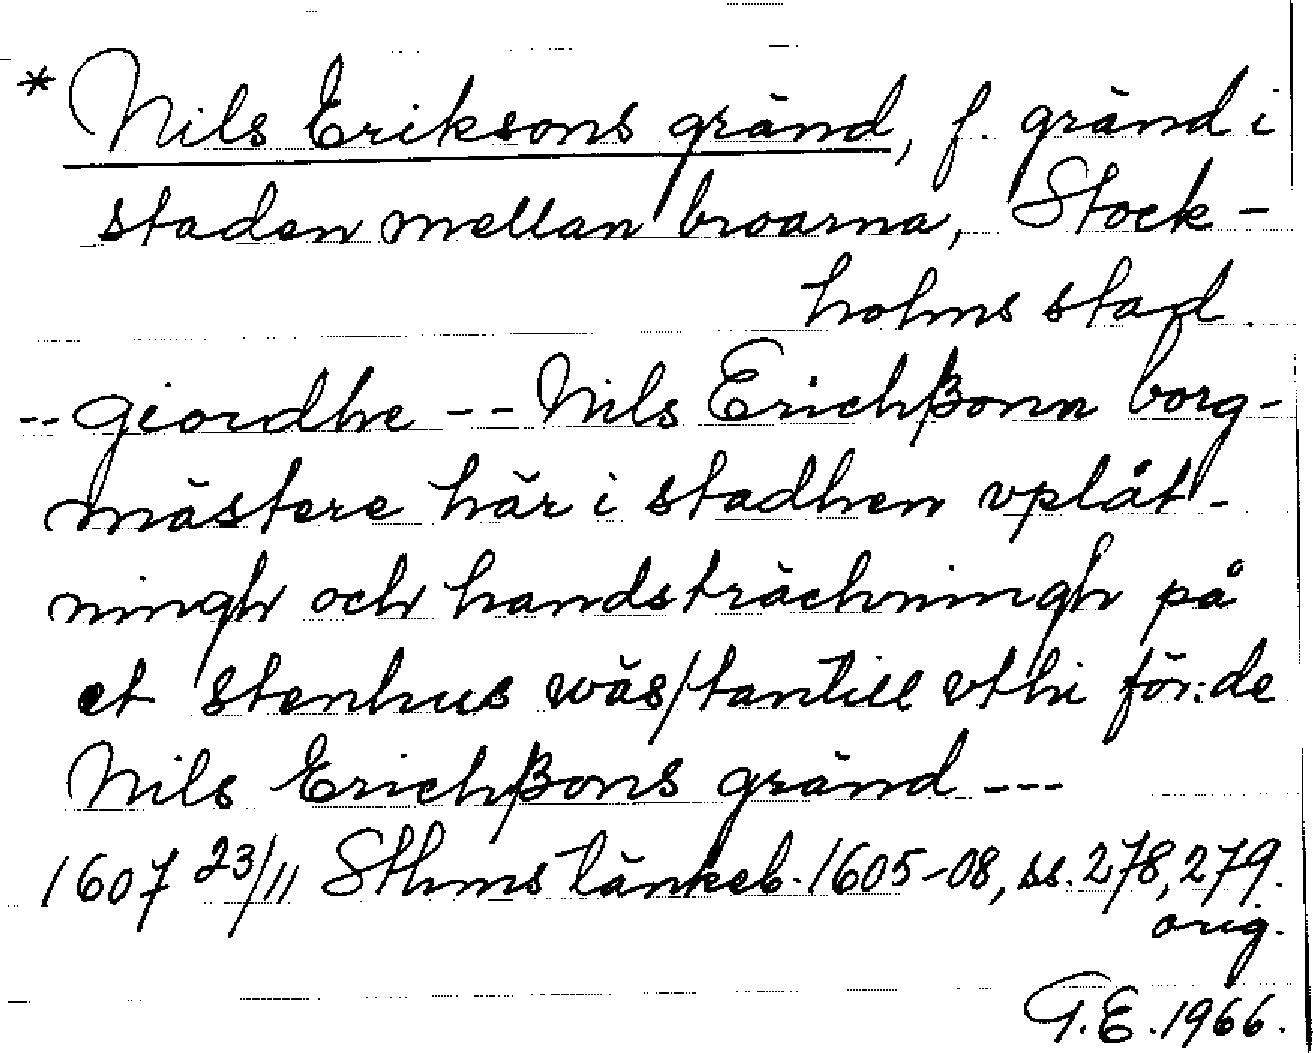 * Nils Eriksons gränd, f. gränd i
staden mellan broarna, Stock-
holms stad.
-- giordhe -- Nils Erichßonn borg-
mästere här i stadhen vplåt-
ningh och handsträchningh på
et stenhus wäs/tantill vthi för:de
Nils Erichßons gränd ---
1607 23/11 Sthms tänkeb. 1605-08, ss. 278, 279.
orig.
G.E. 1966.